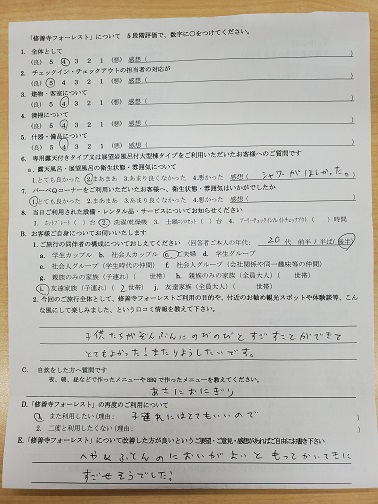 「修善寺フォーレスト」について 5段階評価で、数字に○をつけてください。
1. 全体として
(良) 5 4 3 2 1 (悪) 感想(
2. チェックイン・チェックアウトの担当者の対応が
(良) 5 4 3 2 1 (悪) 感想(
3. 建物・客室について
(良) 5 4 3 2 1 (悪) 感想(
4. 清掃について
(良) 5 4 3 2 1 (悪) 感想(
5. 什器・備品について
(良) 5 4 3 2 1 (悪) 感想(
6. 専用露天付きタイプ又は展望岩風呂付大型棟タイプをご利用いただいたお客様へのご質問です
a. 露天風呂・展望風呂の衛生状態・雰囲気について
1.とても良かった 2.まあまあ 3.あまり良くなかった 4.悪かった 感想( シャワーがほしかった。)
7. バーベQコーナーをご利用いただいたお客様へ、衛生状態・雰囲気はいかがでしたか
1.とても良かった 2.まあまあ 3.あまり良くなかった 4.悪かった 感想(
8. 当日ご利用された設備・レンタル品・サービスについてお知らせください。
( )台 2.洗濯/乾燥機 ( )台 ( )時間
B. お客様ご自身についてお伺いいたします
1.ご旅行の同伴者の構成についておしえてください (回答者ご本人の年代: 20 代 前半/半ば/後半)
a. 学生カップル b. 社会人カップル c. ご夫婦 d. 学生グループ
e. 社会人グループ(学生時代の仲間) f. 社会人グループ(会社関係や同一趣味等の仲間)
g. 親族のみの家族(子連れ)( 世帯) h. 親族のみの家族(全員大人)( 世帯)
i. 友達家族(子連れ)( 2 世帯) j. 友達家族(全員大人)( 世帯)
2. 今回のご旅行全体として、修善寺フォーレストご利用の目的や、付近のお勧め観光スポットや体験談等、こん
な風にして楽しみました、という口コミ情報を教えて下さい。
子供たちがぞんぶんにのびのびとすごすことができて
とてもよかった!またりようしたいです。
C. 自炊をした方へ質問です
夜、朝、昼などで作ったメニューやBBQで作ったメニューを教えてください。
あさにおにぎり
D.「修善寺フォーレスト」の再度のご利用について
1. また利用したい(理由: 子連れにはとてもいいので )
2. 二度と利用したくない(理由: )
E.「修善寺フォーレスト」について改善した方が良いというご要望・ご意見・感想があればご自由にお書き下さい
へややふとんのにおいがよいともっとかいてきに
すごせそうでした!